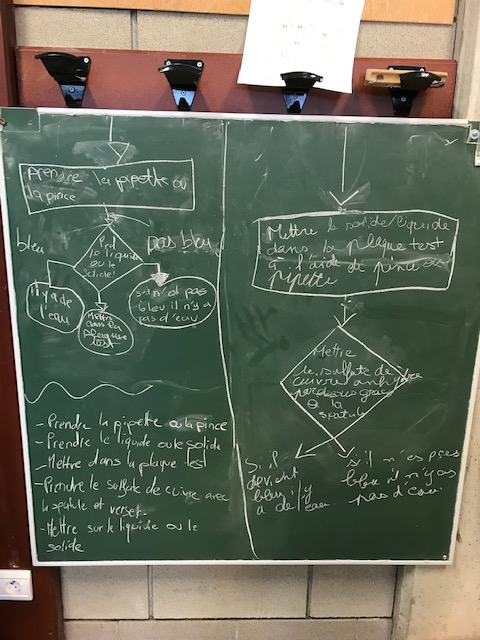 Prendre la pipette ou
la pince
bleu
pas bleu
le liquide
ou le
solide!
Il y a de
l'eau
Mettre
dans la
plaque
test
s'il n'est pas
bleu il n'y a
pas d'eau
- Prendre la pipette ou la pince
- Prendre le liquide ou le solide
- Mettre dans la plaque test
- Prendre le sulfate de cuivre avec
la spatule et verser.
- Mettre sur le liquide ou le
solide
Mettre le solide/liquide
dans la plaque test
à l'aide de pince ou
pipette
Mettre
le sulfate de
cuivre anhydre
par dessus grace
a la
spatule
S'il
devient
bleu il y
a de l'eau
s'il n'es pas
bleu il n'y as
pas d'eau